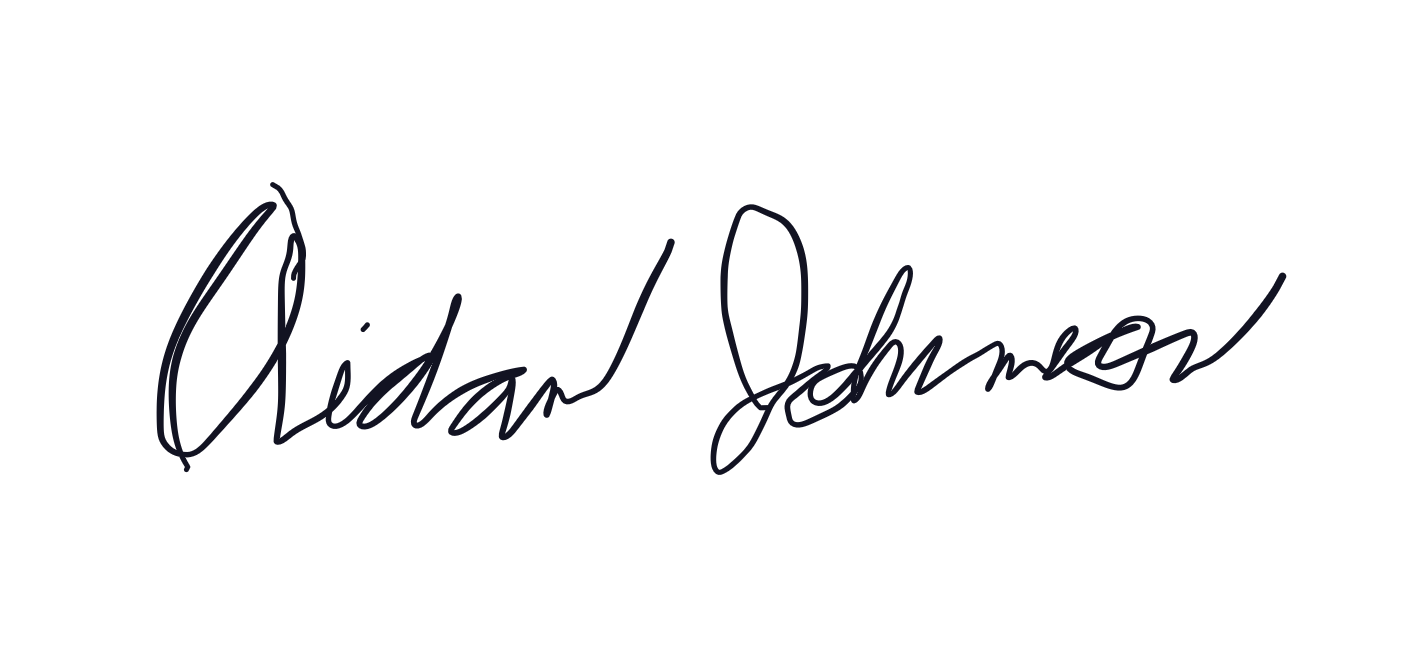 Aidan Johnson